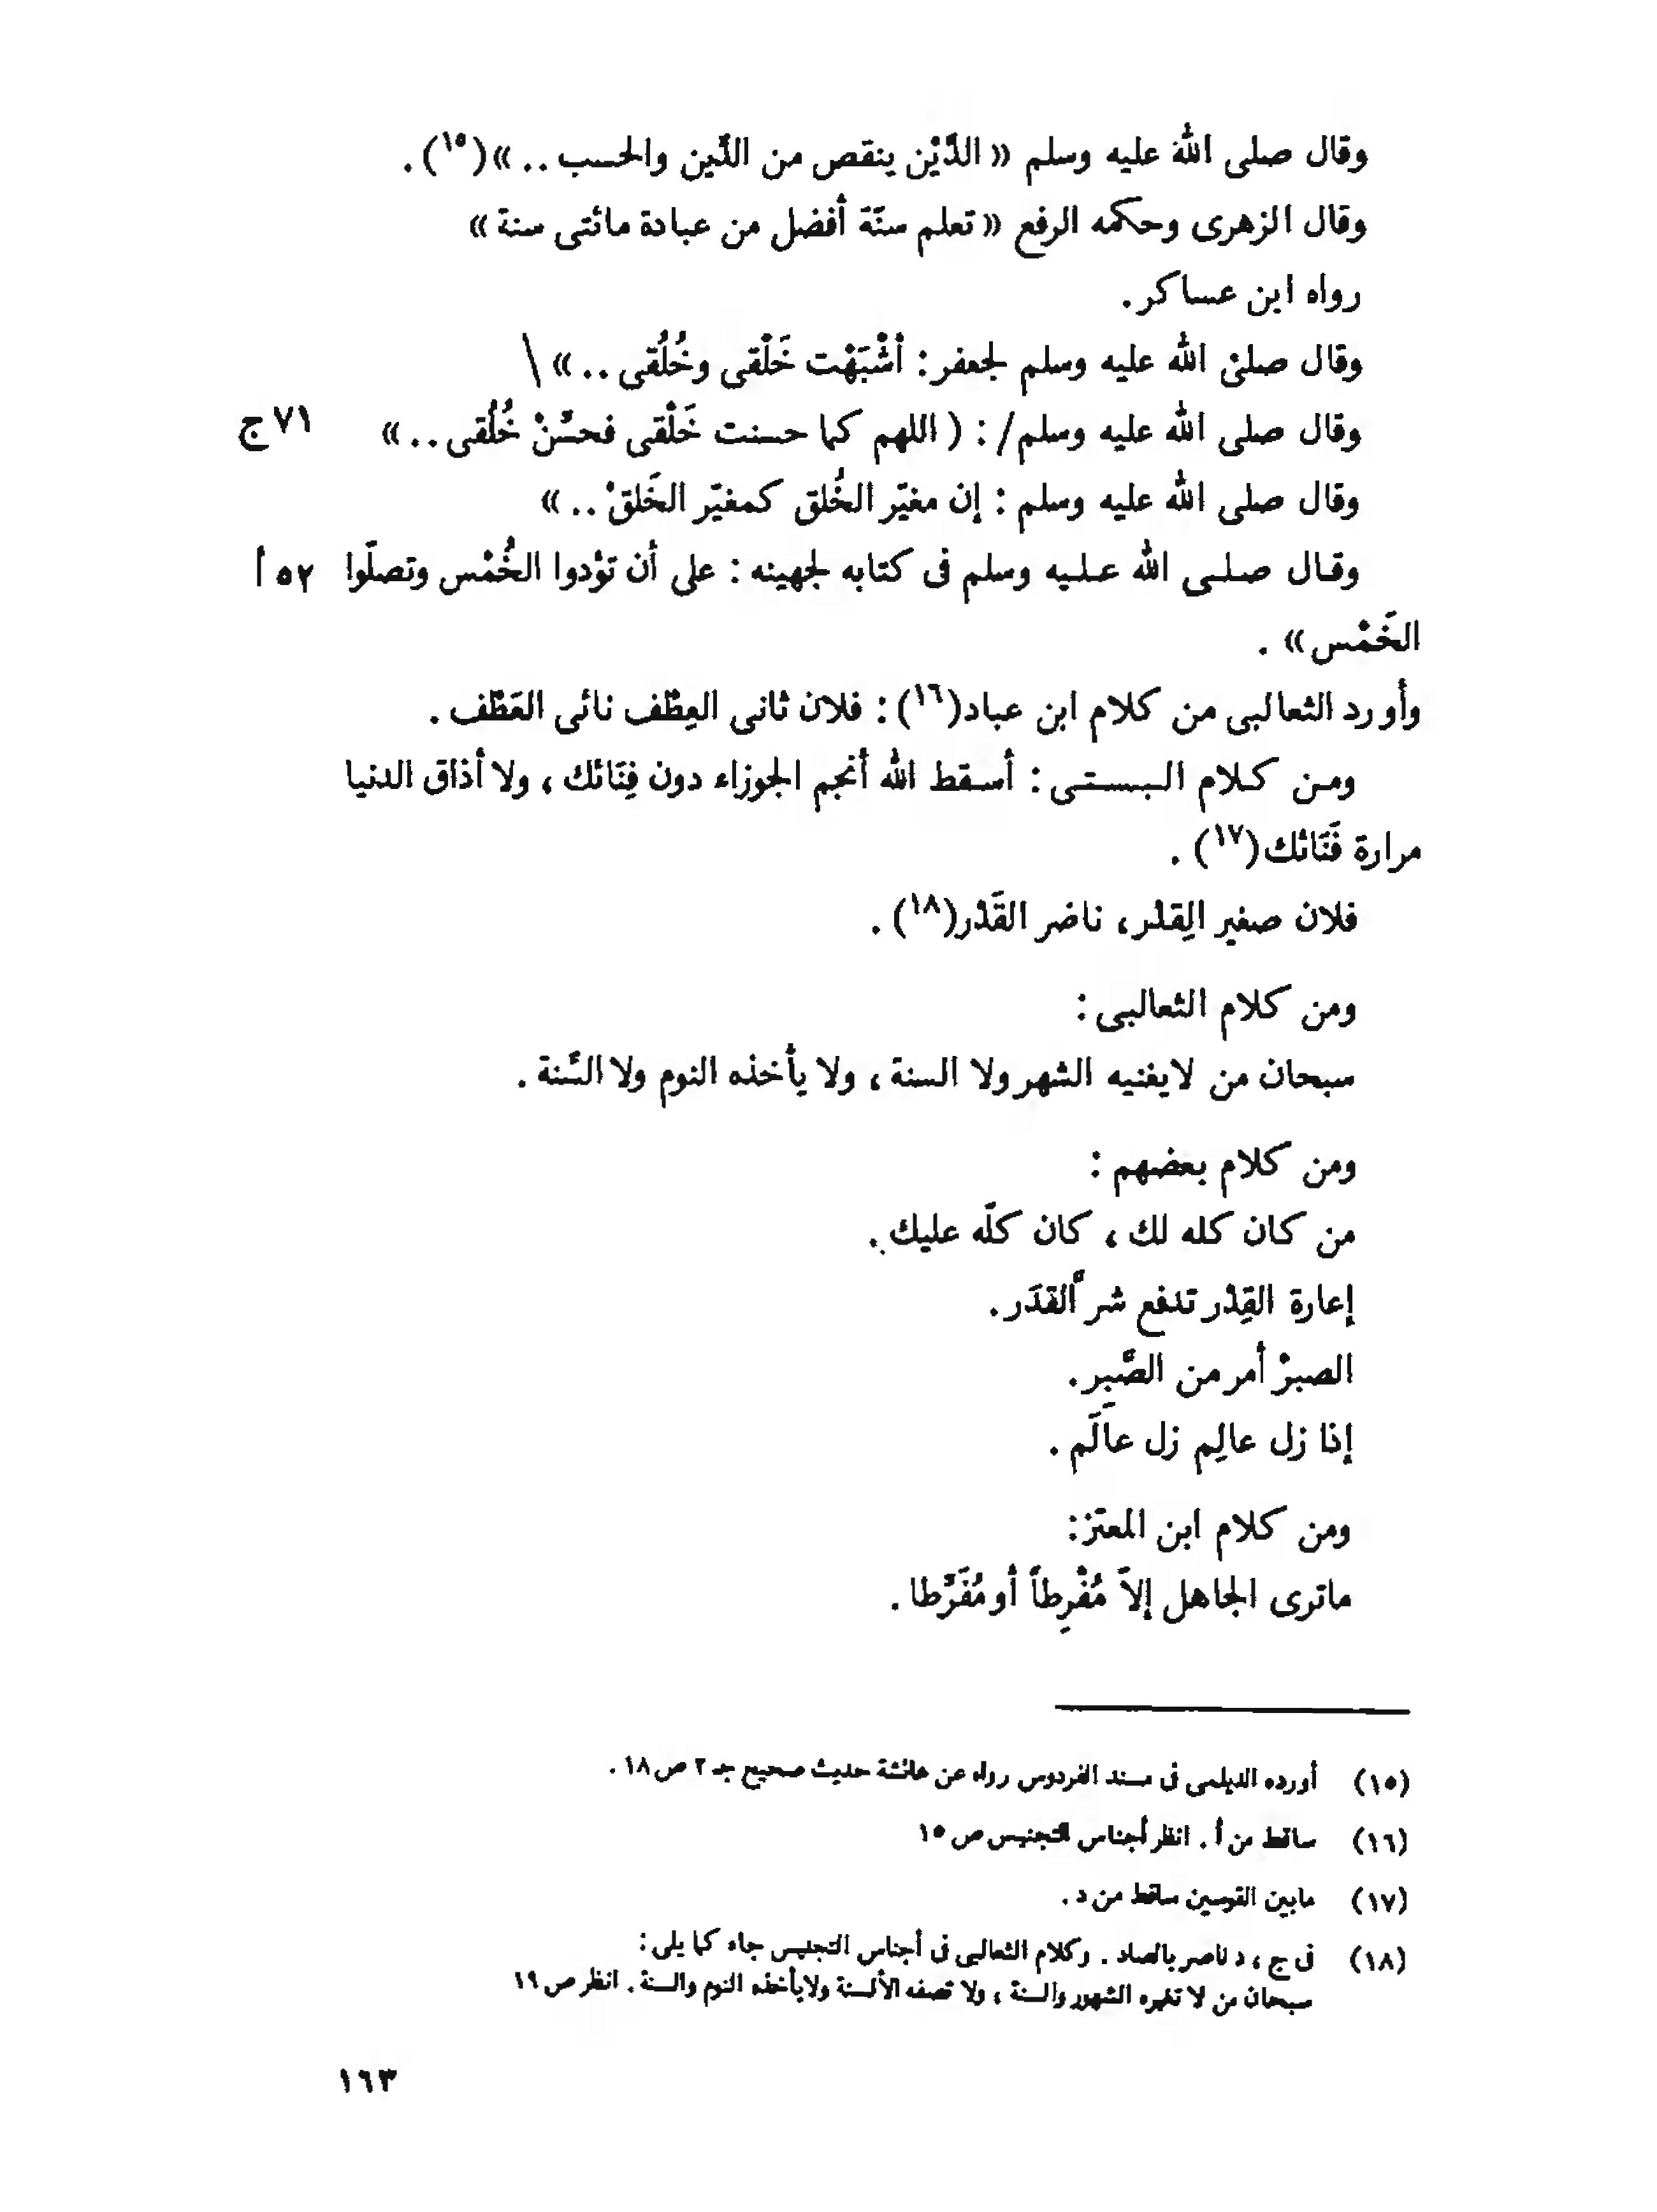 وقال صلى الله عليه وسلم « الدَّيْن ينقص من الدِّين والحسب .. »(١٥) .
وقال الزهرى وحكمه الرفع « تعلم سنّة أفضل من عبادة مائتى سنة »
رواه ابن عساكر .
وقال صلى الله عليه وسلم لجعفر : أشْبَهْت خَلْقى وخُلُقى .. » \
وقال صلى الله عليه وسلم/ : ( اللهم كما حسنت خَلْقى فحسِّنْ خُلُقى .. » ٧١ ج
وقال صلى الله عليه وسلم : إن مغيّر الخُلق كمغيّر الخَلقْ .. »
وقال صلى الله عليه وسلم فى كتابه لجهينه : على أن تؤدوا الخُمْس وتصلّوا ٥٢ أ
الخَمْس » .
وأورد الثعالبى من كلام ابن عباد(١٦) : فلان ثانى العِطْف نائى العَطْف .
ومن كلام البستى : أسقط الله أنجم الجوزاء دون فِنَائك ، ولا أذاق الدنيا
مرارة فَنَائك(١٧) .
فلان صغير القِدْر ، ناضر القَدْر(١٨) .
ومن كلام الثعالبى :
سبحان من لايفنيه الشهر ولا السنة ، ولا يأخذه النوم ولا السِّنة .
ومن كلام بعضهم :
من كان كله لك ، كان كلّه عليك .
إعارة القِدْر تدفع شر القدَر .
الصبرْ أمر من الصَّبِر .
إذا زل عالِم زل عالَم .
ومن كلام ابن المعتز :
ماترى الجاهل إلاّ مُفْرِطاً أو مُفَرِّطا .
(١٥) أورده الديلمى فى مسند الفردوس رواه عن عائشة حديث صحيح جـ ٢ ص ١٨ .
(١٦) ساقط من أ . انظر أجناس التجنيس ص ١٥
(١٧) مابين القوسين ساقط من د .
(١٨) فى ج ، د ناصر بالصاد . وكلام الثعالبى فى أجناس التجنيس جاء كما يلى :
سبحان من لا تغيره الشهور والسنة ، ولا تصفه الألسنة ولايأخذه النوم والسنة . انظر ص ١٩
١٦٣